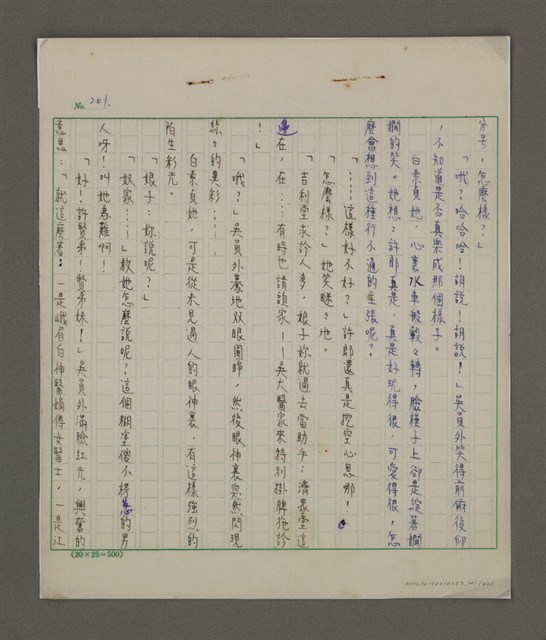 No. 201.
分号，怎麼樣？」
「哦？哈哈哈！胡說！胡說！」吳員外笑得前俯後仰
，不知道是否真樂成那個樣子。
白素貞她，心裏水車般轂々轉，臉模子上卻是綻著嫻
嫻的笑。她想：許郎真是，真是好玩得很，可愛得很，怎
麼會想到這種行不通的主張呢？
「……這樣好不好？」許郎還真是挖空心思哪！
「怎麼樣？」她笑瞇々地。
「吉利堂求診人多，娘子妳就過去當助手；濟眾堂這
邊在，在……有時也請頭家——吳大醫家來特別掛牌施診
！」
「哦？」吳員外驀地双眼圓睜，然後眼神裏突然閃現
絲々的異彩……
白素貞她，可是從未見過人的眼神裏，有這樣強烈的
陌生彩光。
「娘子：妳說呢？」
「奴家…」教她怎麼說呢？這個糊塗傻不楞的男
人呀！叫她為難啊！
「好！許賢弟！賢弟妹！」吳員外滿臉紅光，興奮的
意思：「就這麼著：一是峨眉白神醫嫡傳女醫士，一是江
(20×25=500)